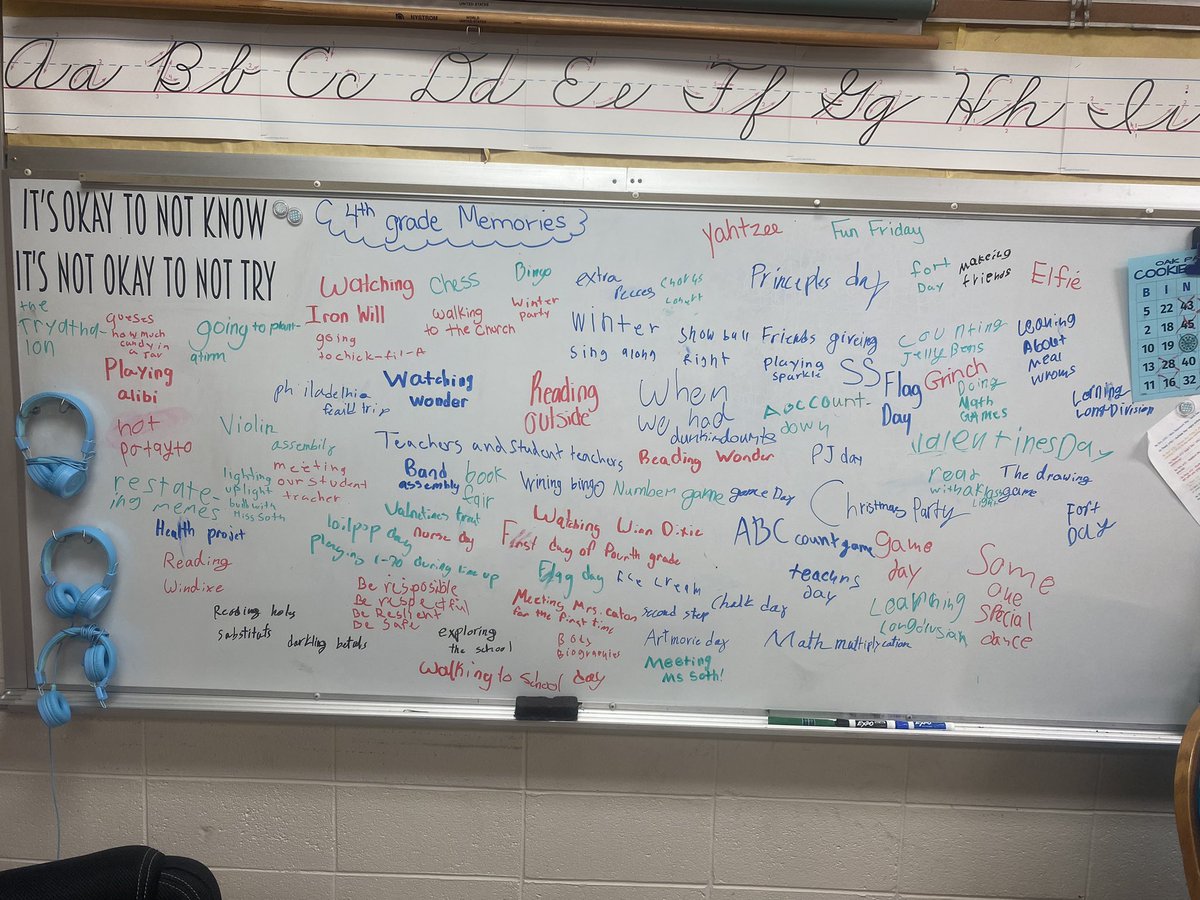 NYSTROM
WORLD
UNITED STATES
Aa Bb Cc Dd Ee Ff Gg Hh Ii
IT'S OKAY TO NOT KNOW
IT'S NOT OKAY TO NOT TRY
4th grade Memories
Yahtzee
Fun Friday
Watching
Iron Will
Chess
Bingo
extra
Recces
Principles day
fort
Day
makeing
friends
Elfie
the
Tryatha-
lon
gueses
how much
candy in
a Jar
going to plant-
going
to chick-fil-A
walking
to the church
Winter
party
winter
sing along
Friends giveing
playing
sparkle
SS
counting
Jelly Bens
Leaning
About
meal
wroms
Playing
alibi
philadelhia
Watching
wonder
Reading
outside
When
we had
dunkindounts
Account-
down
Flag
Day
Grinch
Doing
Math
GAMES
Lorning
Long Division
hot
potayto
Violin
assembily
Teachers and student teachers
Reading Wonder
PJ day
ValentinesDay
restate-
ing memes
lighting
up light
bulb with
Miss Soth
meeting
our student
tracher
Band
assembly
book
fair
Wining bingo
Number game
game Day
Christmas Party
The drawing
game
Fort
Day
Health projet
loilpop day
Nurse day
Watching Winn Dixie
First day of Fourth grade
ABC count game
game
day
Some
one
special
dance
Reading
Windixe
playing 1-20 during line up
Flag day
Ice cream
teachrs
day
Be resposible
Be respectful
Be Reslient
Be safe
Meeting Mrs. Eaton
for the first time
second step
Chalk day
Learning
exploring
the school
Biographies
Art movie day
Math multiplycation
Walking to School day
Meeting
Ms Soth!
OAK PA
COOKIE
B I N
5 22 43
2 18 45
10 19
13 28 40
11 16 32
EXPO